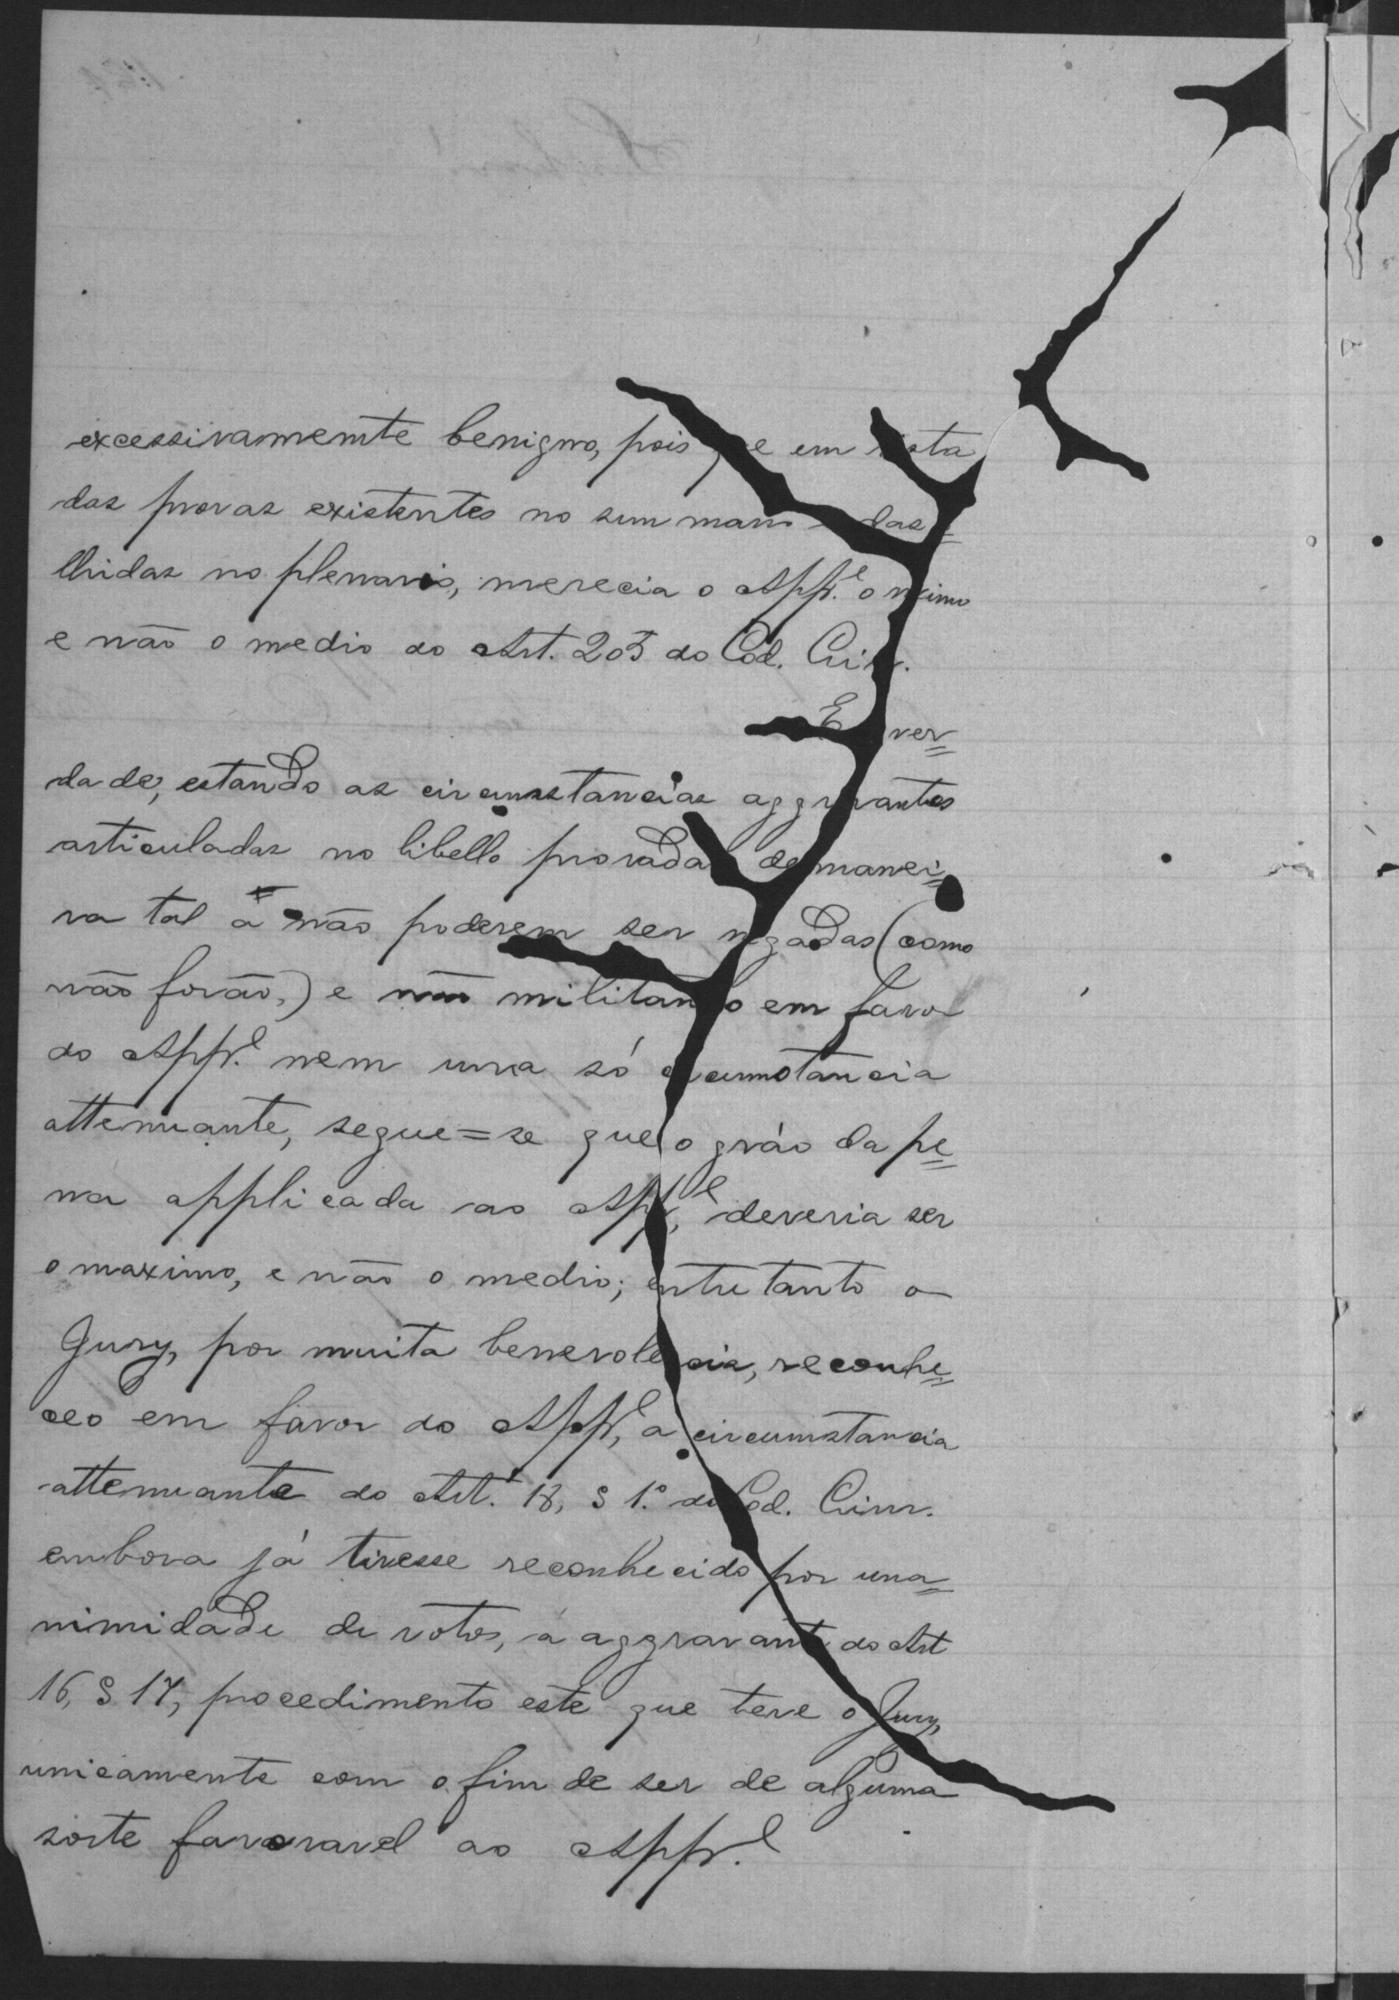 excessivamente benigno, pois que em vista
das provas existentes no summario e das
lhidas no plenario, merecia o App.e o
e não o medio do Art. 205 do Cod. Crim.
E ver=
dade, estando as circumstancias aggravantes
articuladas no libello provadas de manei=
ra tal a não poderem ser negadas (como
não forão,) e não militando em favor
do App.e nem uma só circumstancia
attenuante, segue=se que o gráo da pe=
na applicada ao App.e, deveria ser
o maximo, e não o medio; entretanto o
Jury, por muita benevolencia, reconhe=
ceo em favor do App.e, a circumstancia
attenuante do Art. 18, § 1.º do Cod. Crim.
embora já tivesse reconhecido por una=
nimidade de votos, a aggravante do Art
16, § 17, procedimento este que teve o Jury,
unicamente com o fim de ser de alguma
sorte favoravel ao App.e